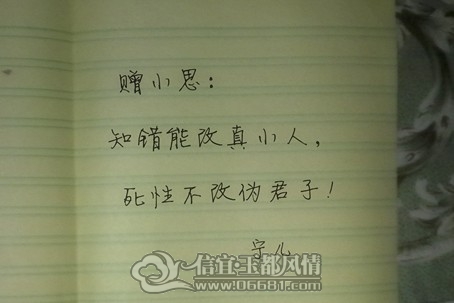 赠小思：
知错能改真小人，
死性不改伪君子！
宁儿
信宜玉都风情
www.06681.com